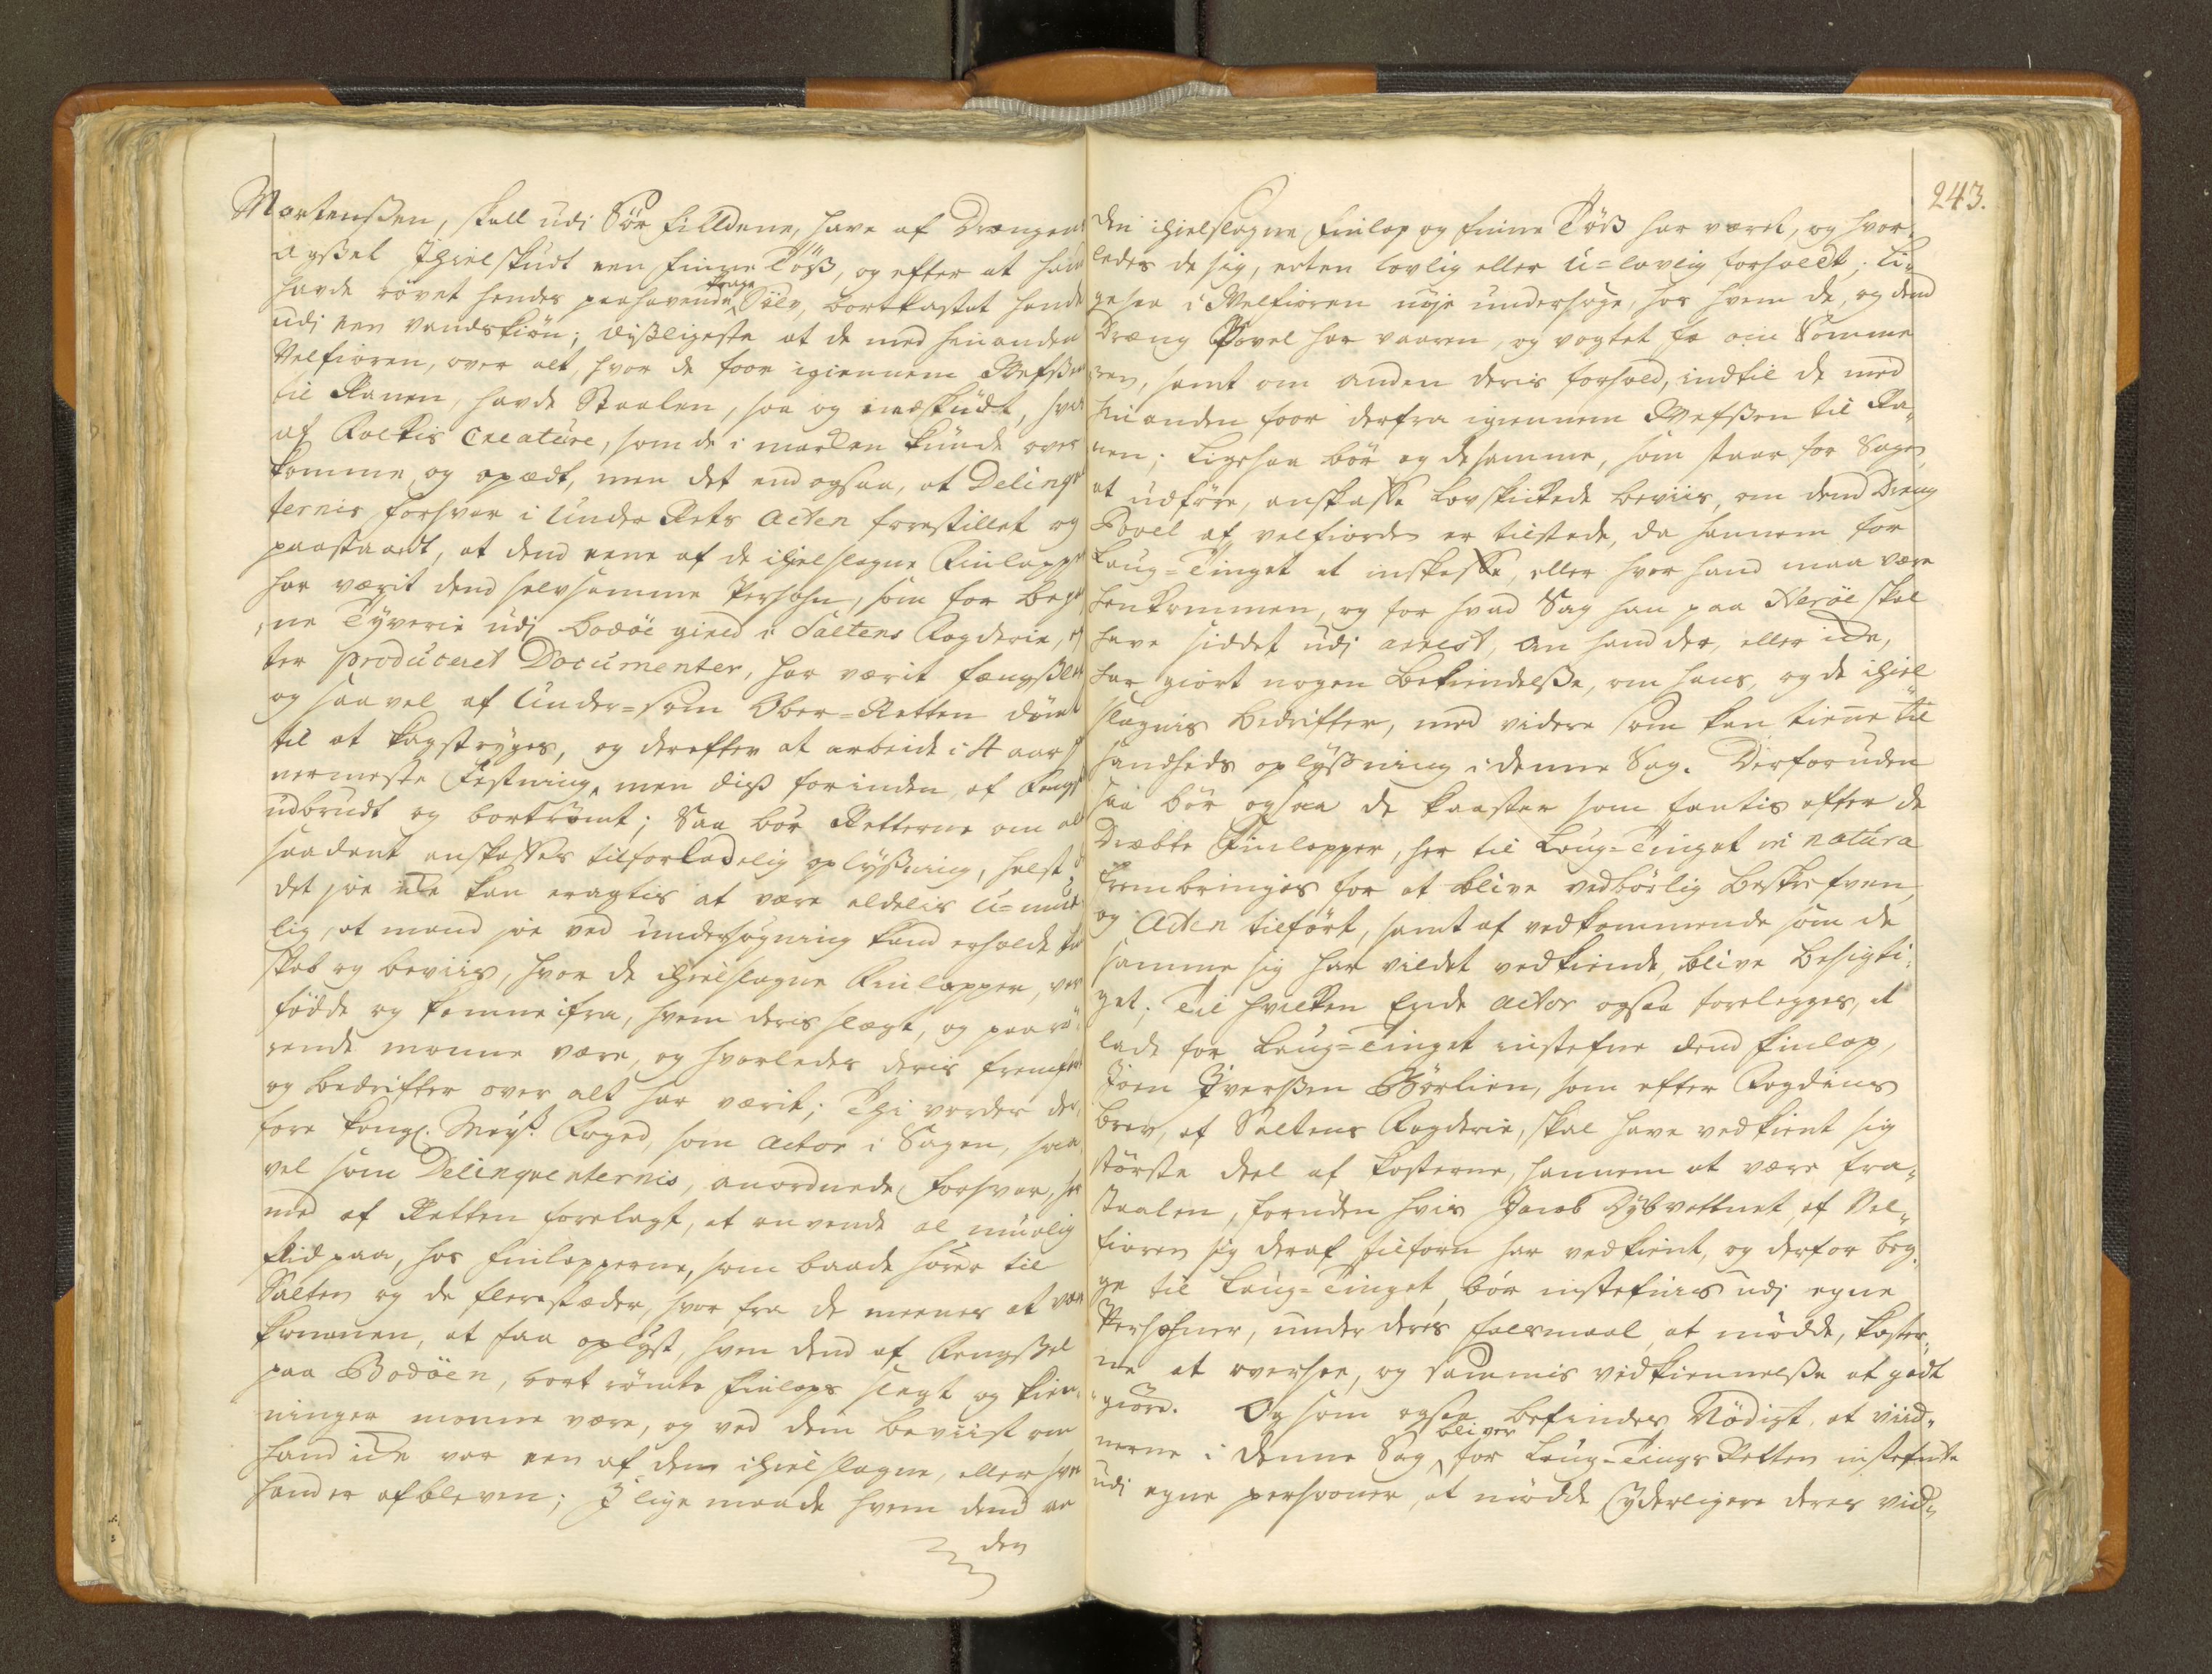 Mortenßen, skall udi Sør fielldene, have af Drengens
Ihielskudt een finne Töß, og efter at hand
havde røvet hendes paahavende krage Sølv, bortkastet hende
udi een vandkiøn; dißligeste at de med hinanden
Velfioren, over alt, hvor de foor igiennem Vefsen
til Ranen, havde Staalen, saa og nedskudt, hvad
af Folkis Creature, som de i marken kunde over
komme, og opædt, men det end ogsaa, at Delinqv
ternis forsvar i Under Rets Acten forestillet og
paastaaet, at dend eene af de ihielslagne Finlapper
har værit dend selvsamme Persohn, som for beg
ne Tyverie udj Bodøe gield i Saltens Fogderie, ef
ter produceret Documenter, har værit fængßlet
og saavel af Under= som Over=Retten dømt
til at kagstryges, og derefter at arbeide i 4 aar i
nermeste Festning, men diß forinden, af Fengsl
udbrudt og bortrømt; Saa bør Retterne om alt
saadant anskaffes tilforladelig oplysning, helst
det joe icke kan eragtis at være aldelis u=mue
lig, at mand joe ved undersøgning kand erholde kund
skab og beviis, hvor de ihielslagne Finlapper, var
fødde og komne ifra, hvem deris slægt, og paarø=
rende monne være, og hvorledes deris fremfærd
og bedrifter over alt har værit; Thi vorder der,
fore Kongl. Mayst. Foged, som Actor i Sagen, saa
vel som Delinqventernis, anordnede forsvar, her
med af Retten forelagt, at anvende al muelig
flid paa, hos finlapperne, som baade hører til
Salten og de flere stæder, hvor fra de meenes at være
kommen, at faa oplyst, hvem dend af Fengßel
paa Bodöen, bort rømte finlaps slegt og kien-
ninger monne være, og ved dem beviist om
hand icke var een af dem ihielslagne, eller hvor
hand er afbleven; I lige maade hvem dend an
den
243.
den ihielslagne finlap og finne Töß har været, og hvor-
ledes de sig, enten lovlig eller u=lovlig forholdt; Li-
gesaa i Velfioren nøje undersøge, hos hvem de, og dend
Dræng Povel har vaaren, og vogtet fæ om Somme
ren, samt om anden deris forhold, indtil de med
hinanden foor derfra igiennem Vefßen til Ra-
nen; Ligesaa bør og desamme, som staar for Sagen
at udføre, anskaffe Lovskickede beviis, om dend Dreng
Povel af velfiorden er tilstede, da hannem for
Laug=Tinget at indskaffe, eller hvor hand maa være
henkommen, og for hvad Sag han paa Herøe skal
have siddet udj arrest, om hand der, eller icke,
har giort nogen Bekiendelße, om hans, og de ihiel
slagnis bedrifter, med videre som kan tiene til
sandheds oplyßning i denne Sag. Derforuden
saa bør ogsaa de kaaster som fantis efter de
Dræbte Finlapper, her til Laug=Tinget in natura
frembringes for at blive vedbørlig beskrefven,
og Acten tilført, samt af vedkommende som de
samme sig har vildet vedkiende, blive besigti-
get; Til hvilken Ende Actor ogsaa forelegges, at
lade for Laug=Tinget instefne dend finlap,
Joen Iverßen Børlien, som efter Fogdens
brev, af Saltens Fogderie, skal have vedkient sig
störste deel af kosterne, hannem at være fra-
staalen, foruden hvis Jacob Dybvattnet, af Vel-
fioren sig deraf tilforn har vedkient, og derfor beg-
ge til Laug=Tinget, bør instefnes udj egne
Persohner, under deris faldsmaal, at mødde, koster-
ne at oversee, og sammis vedkiennelße at godt
giøre. Og som ogsaa befindes Nødigt, at viid-
nerne i denne Sag bliver for Laug=Tings Retten instefnte
udi egne persooner, at mødde Yderligere deres vid-